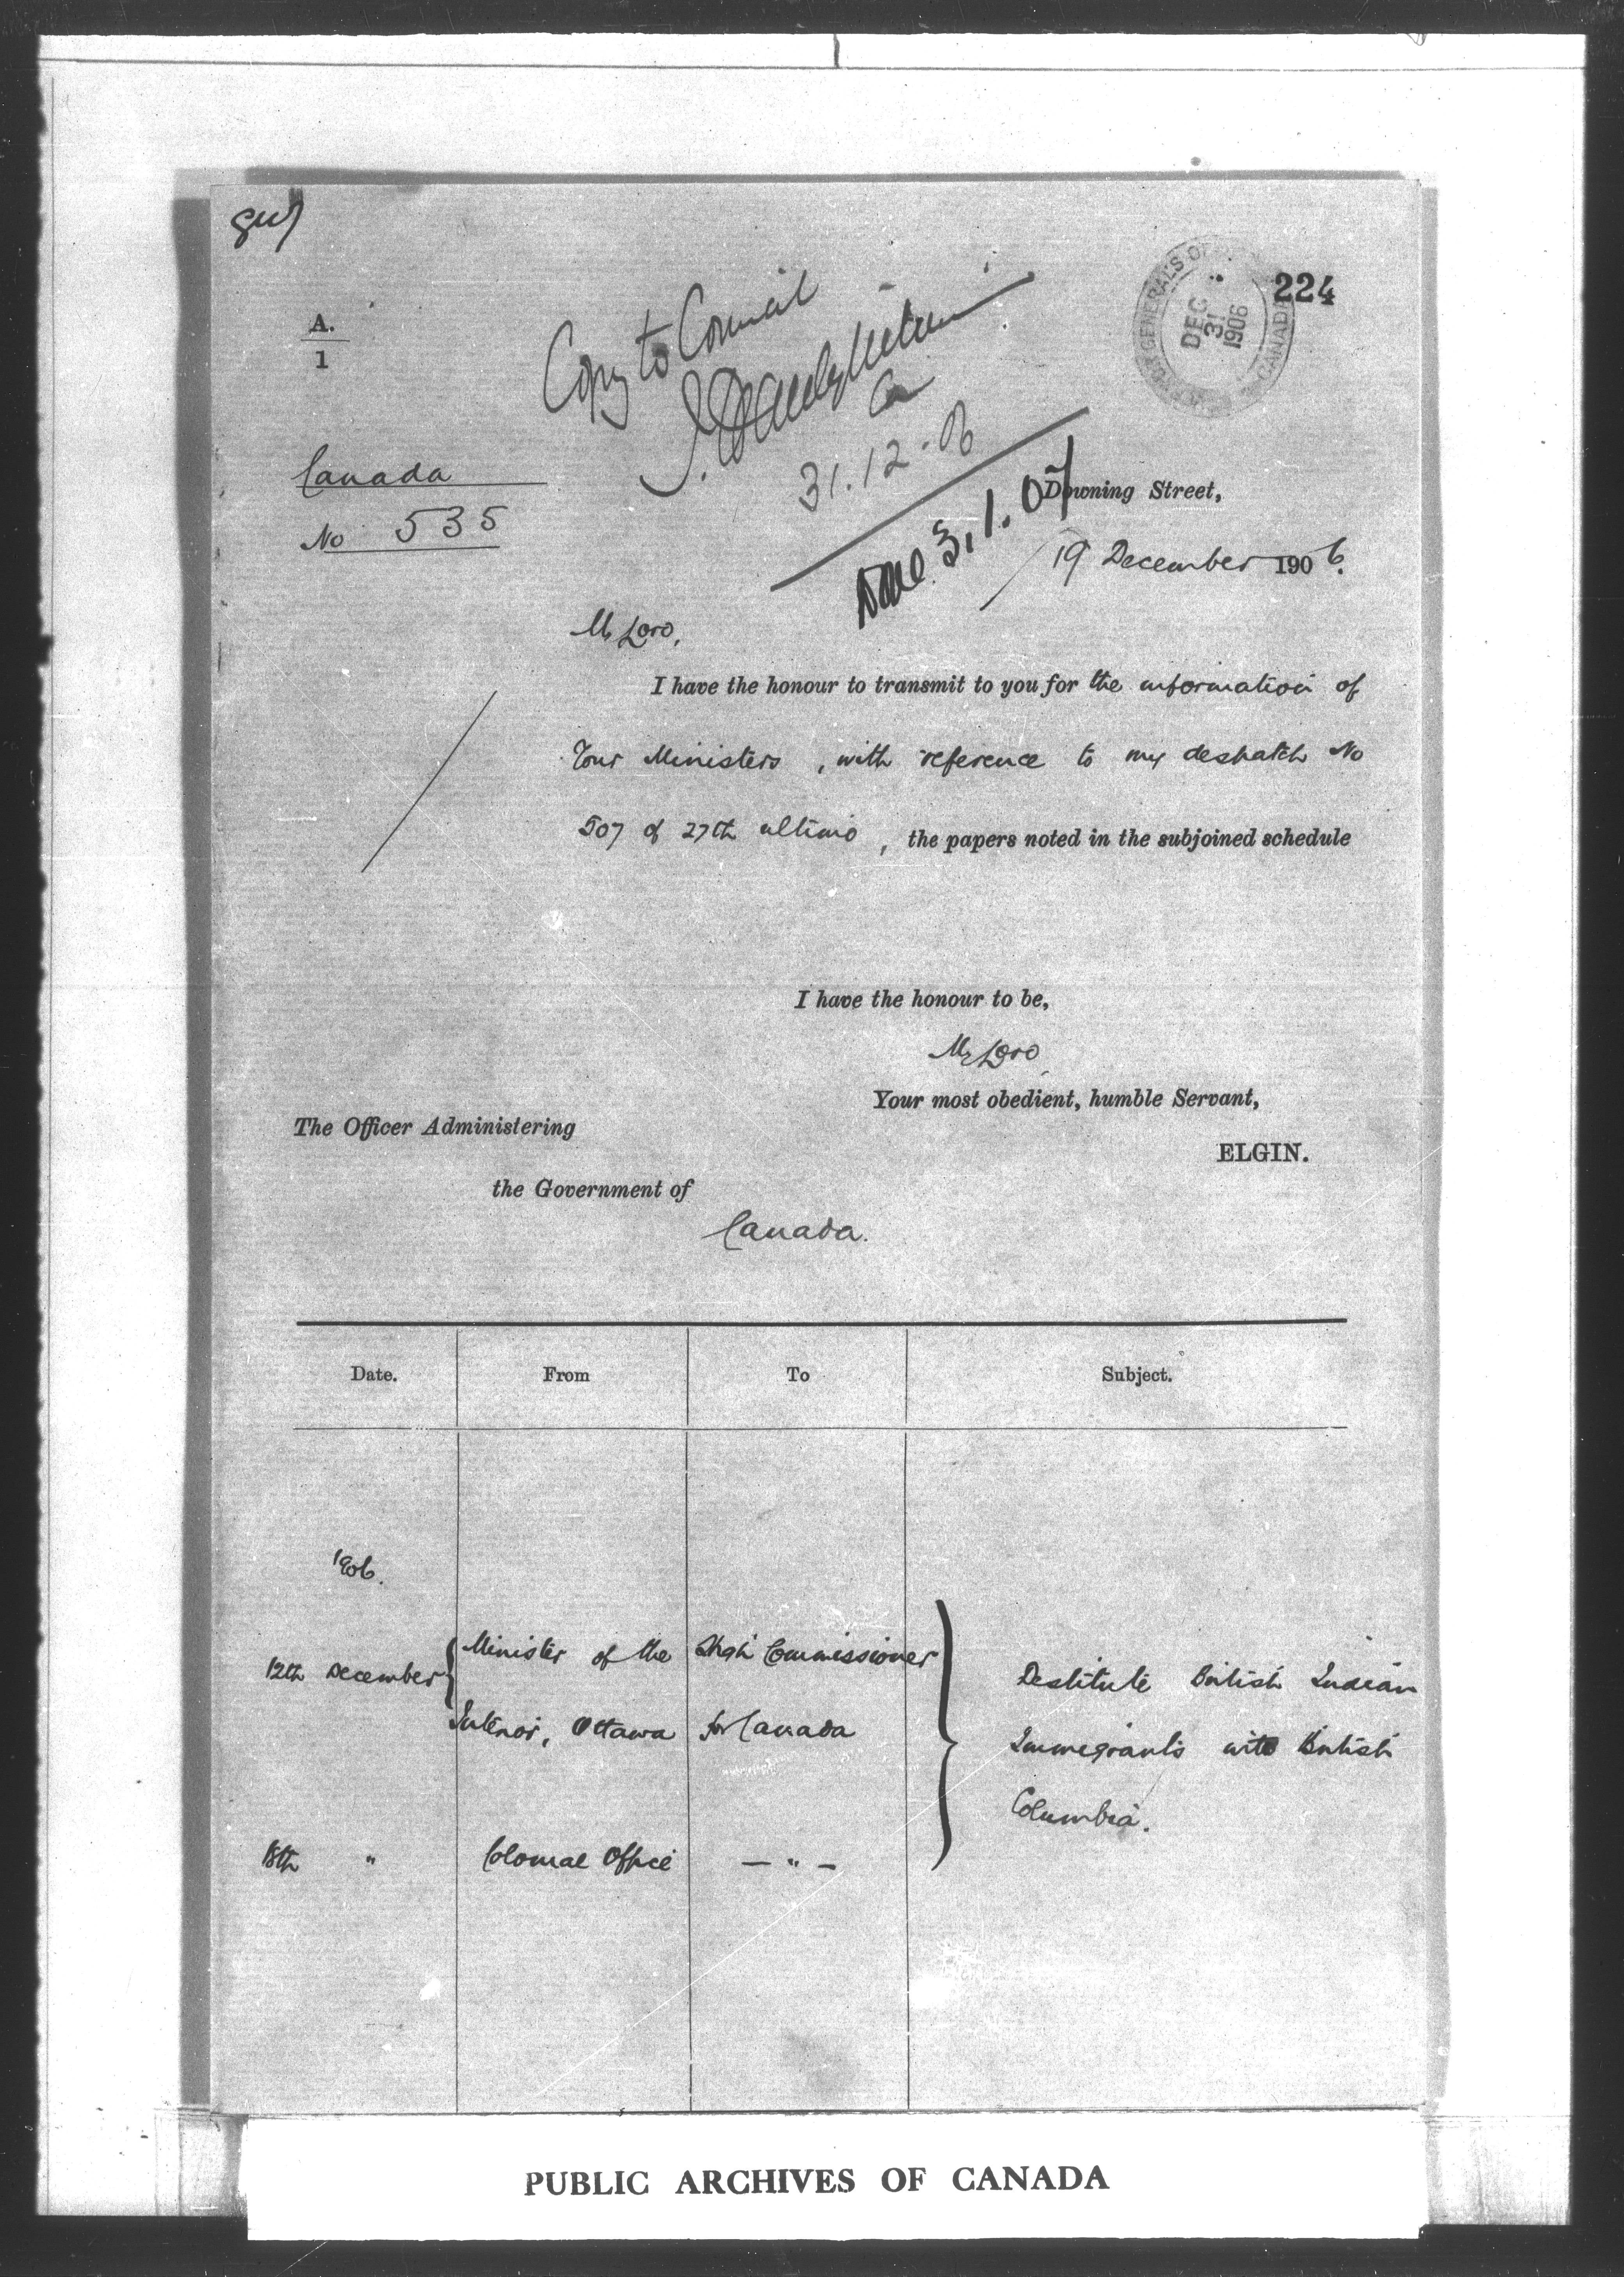 224
GENERAL'S OF
DEC
31
1906
CANADA
A.
1
Copy to Council
31.12.06
Canada
No 535
Done 3.1.07
Downing Street,
19 December 1906.
My Lord,
I have the honour to transmit to you for the information of
Your Ministers, with reference to my despatch No
507 of 27th ultimo, the papers noted in the subjoined schedule
I have the honour to be,
My Lord
Your most obedient, humble Servant,
ELGIN.
The Officer Administering
the Government of
Canada.
Date. From To Subject.
1906.
12th December Minister of the Interior, Ottawa High Commissioner for Canada
18th " Colonial Office — " —
Destitute British Indian
Immigrants into British
Columbia.
PUBLIC ARCHIVES OF CANADA